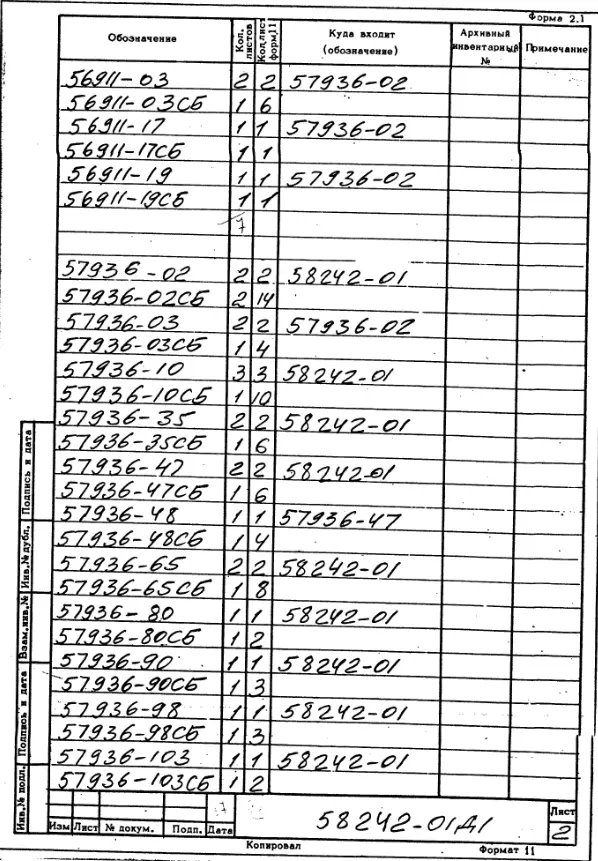 Форма 2.1
Обозначение Кол. листов Кол. лист форм.11 Куда входит (обозначение) Архивный инвентарный № Примечание
56911-03 2 2 57936-02
56911-03СБ 1 6
56911-17 1 1 57936-02
56911-17СБ 1 1
56911-19 1 1 57936-02
56911-19СБ 1 1
57936-02 2 2 58242-01
57936-02СБ 2 14
57936-03 2 2 57936-02
57936-03СБ 1 4
57936-10 3 3 58242-01
57936-10СБ 1 10
57936-35 2 2 58242-01
57936-35СБ 1 6
57936-47 2 2 58242-01
57936-47СБ 1 6
57936-48 1 1 57936-47
57936-48СБ 1 4
57936-65 2 2 58242-01
57936-65СБ 1 8
57936-80 1 1 58242-01
57936-80СБ 1 2
57936-90 1 1 58242-01
57936-90СБ 1 3
57936-98 1 1 58242-01
57936-98СБ 1 3
57936-103 1 1 58242-01
57936-103СБ 1 2
Подпись и дата
Инв.№ дубл.
Взам.инв.№
Подпись и дата
Инв.№ подл.
Изм Лист № докум. Подп. Дата
58242-01Д1
Лист
2
Копировал Формат 11